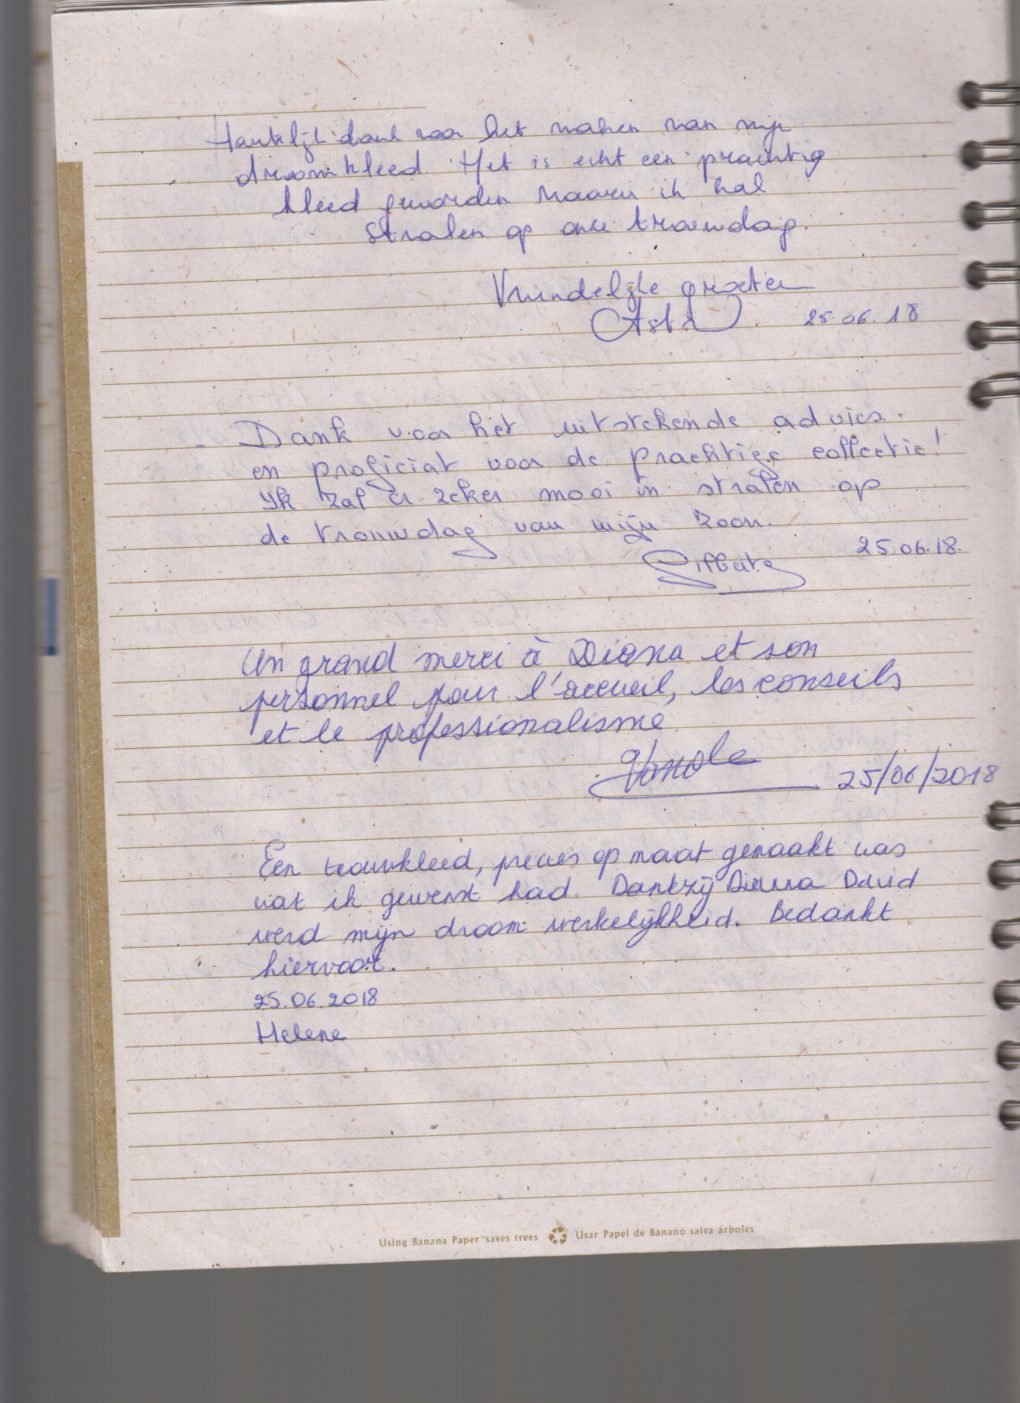 Hartelijk dank voor het maken van mijn
droomkleed. Het is echt een prachtig
kleed geworden waarin ik zal
stralen op onze trouwdag.
Vriendelijke groeten
25.06.18
Dank voor het uitstekende advies.
en proficiat voor de prachtige collectie!
Ik zal er zeker mooi in stralen op
de trouwdag van mijn zoon.
25.06.18.
Un grand merci à Diana et son
personnel pour l'accueil, les conseils
et le professionalisme
25/06/2018
Een trouwkleed, precies op maat gemaakt was
wat ik gewenst had. Dankzij Diana David
werd mijn droom werkelijkheid. Bedankt
hiervoor.
25.06.2018
Helene
Using Banana Paper™saves trees Usar Papel de Banano salva árboles